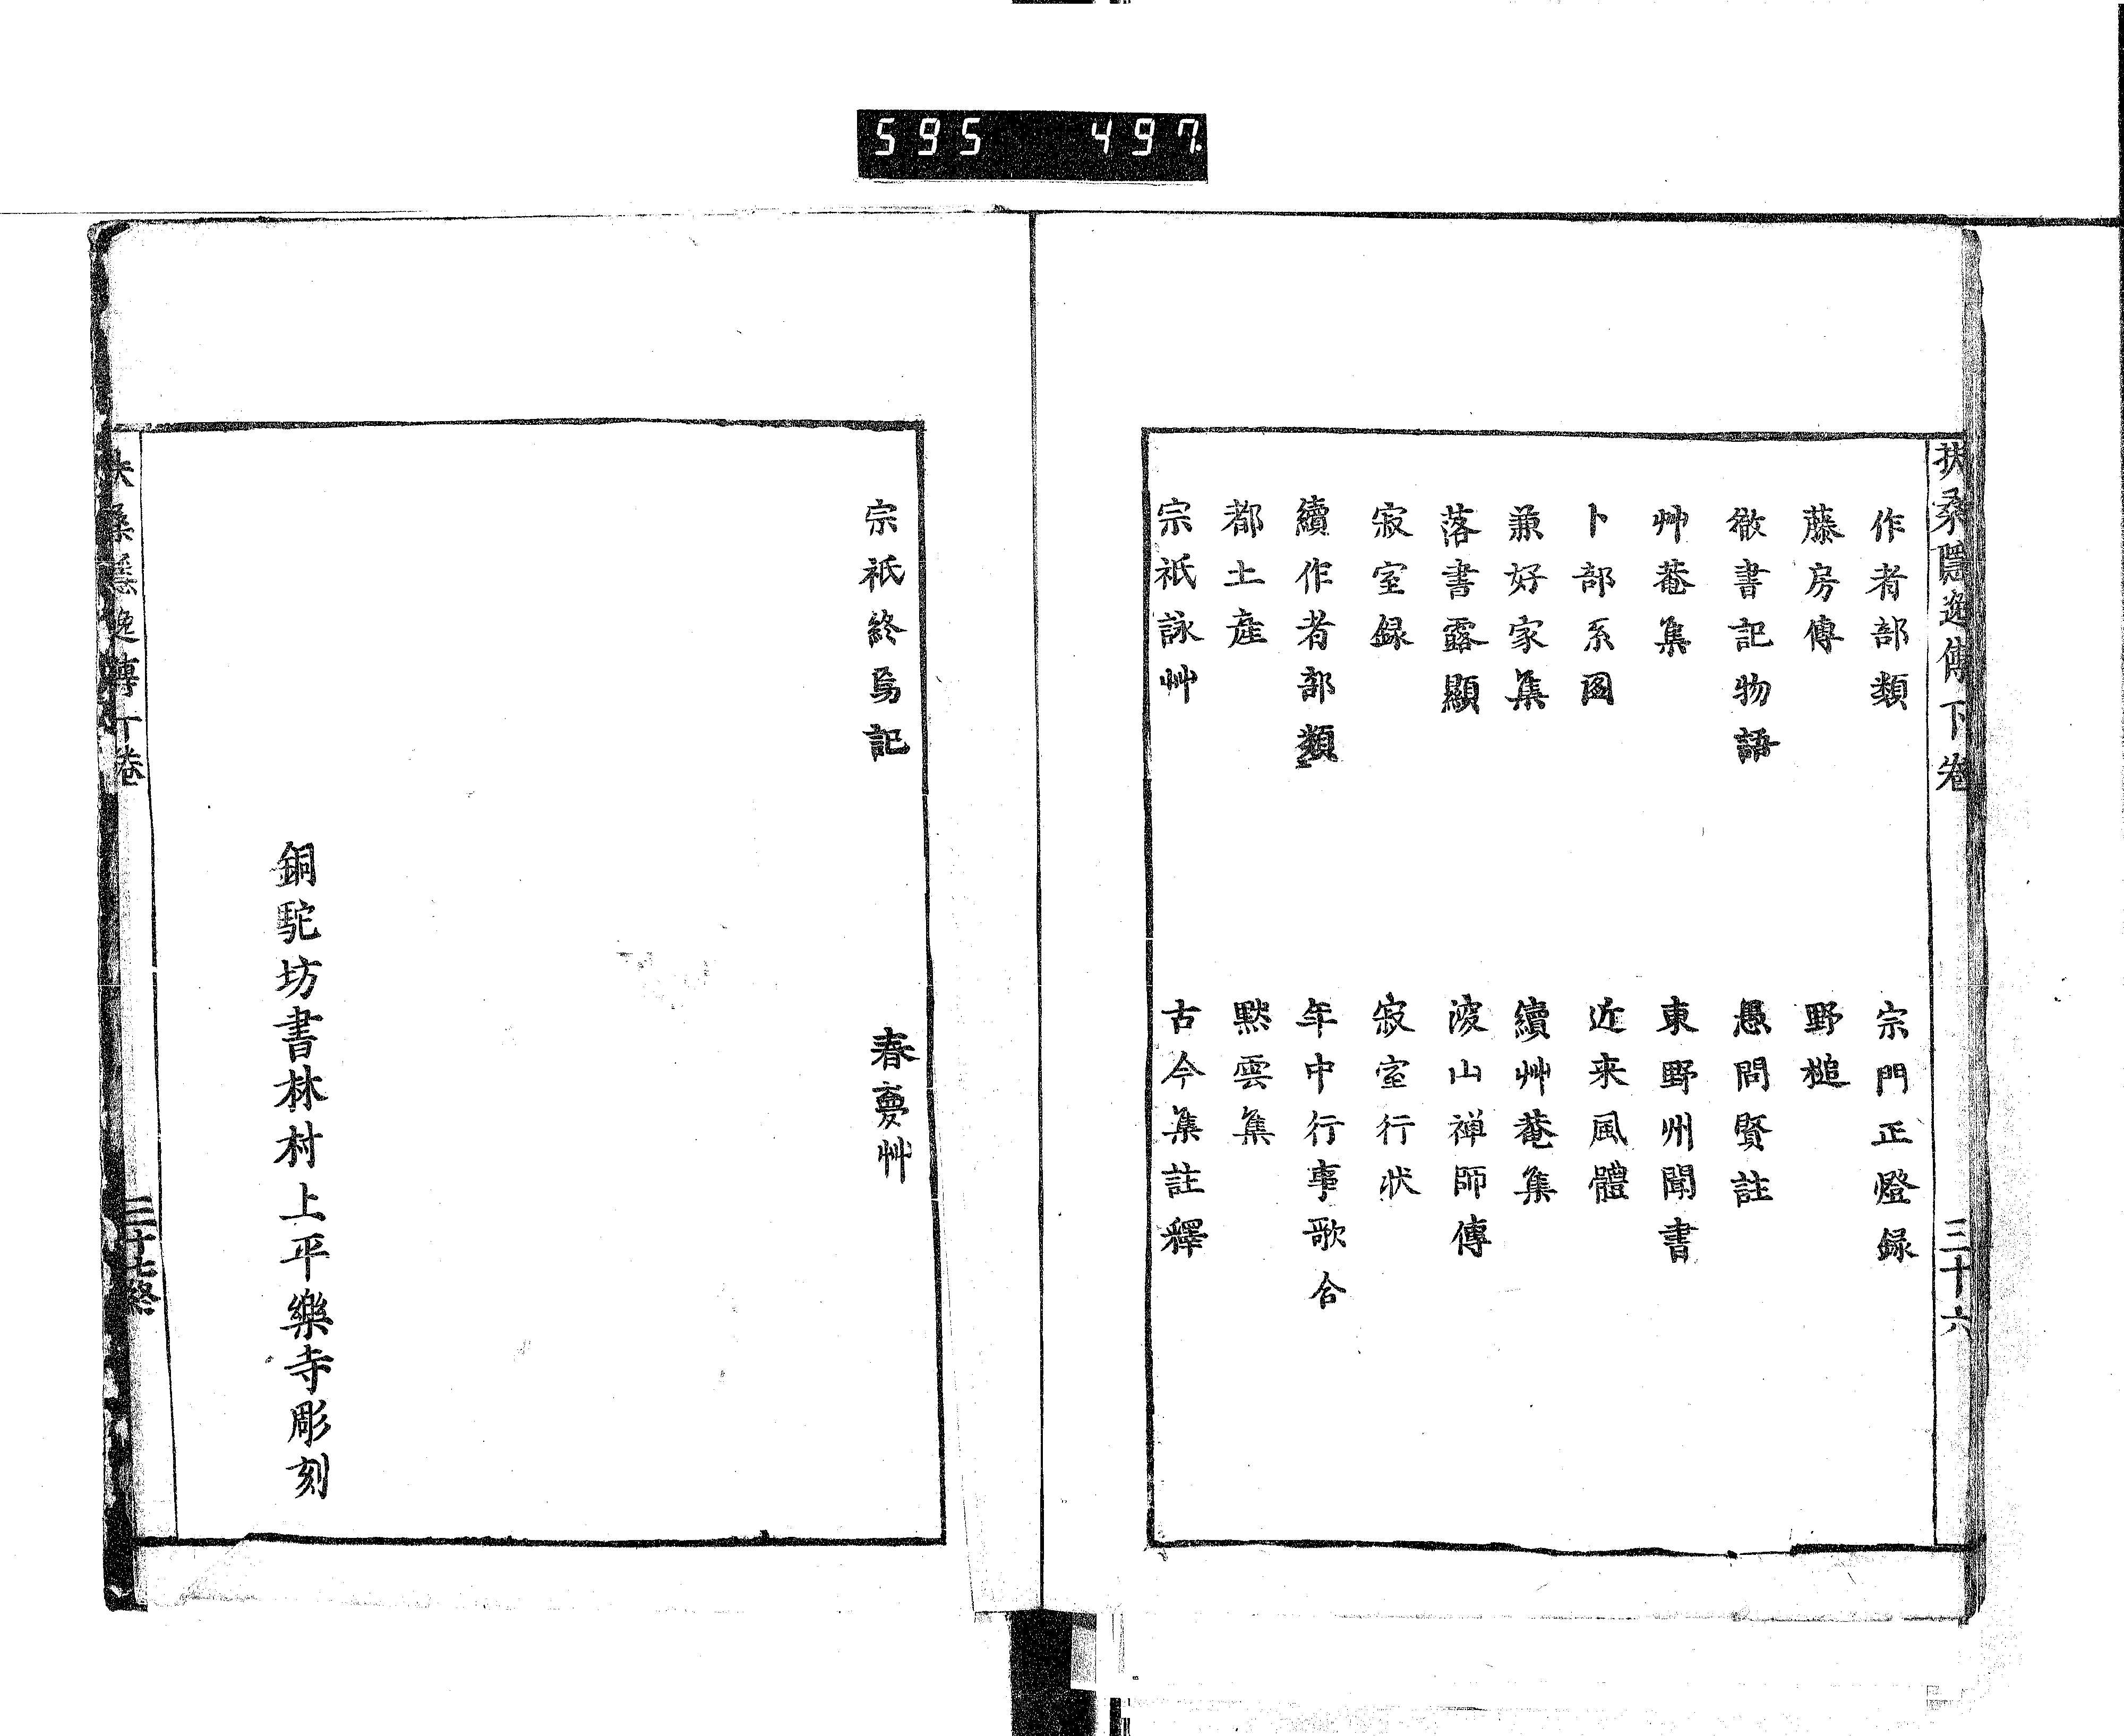 595 497.
扶桑隱逸傳下卷 三十六
作者部類 宗門正燈録
藤房傳 野槌
徹書記物語 愚問賢註
艸菴集 東野州聞書
卜部系図 近来風體
兼好家集 續艸菴集
落書露顯 拔山禅師傳
寂室録 寂室行状
續作者部類 年中行事歌合
都土産 黙雲集
宗祇詠艸 古今集註釋
宗祇終焉記 春夢艸
銅駝坊書林村上平樂寺彫刻
扶桑隱逸傳下卷 三十七終